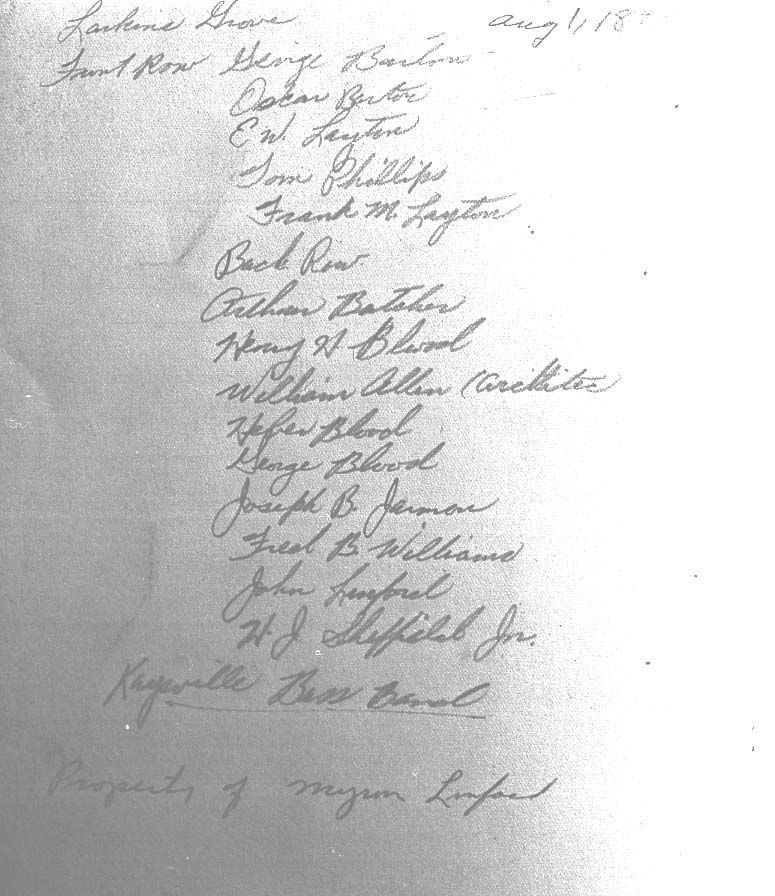 Larkins Grove Aug 1, 18
Front Row George Barton
Oscar Barton
E W. Layton
Tom Phillips
Frank M. Layton
Back Row
Arthur Batcher
Henry H Blood
William Allen (Architec
Heber Blood
George Blood
Joseph B. Jarmon
Fred B. Williams
John Linford
H. J Sheffield Jr.
Kaysville Bess Band
Property of Myron Linford